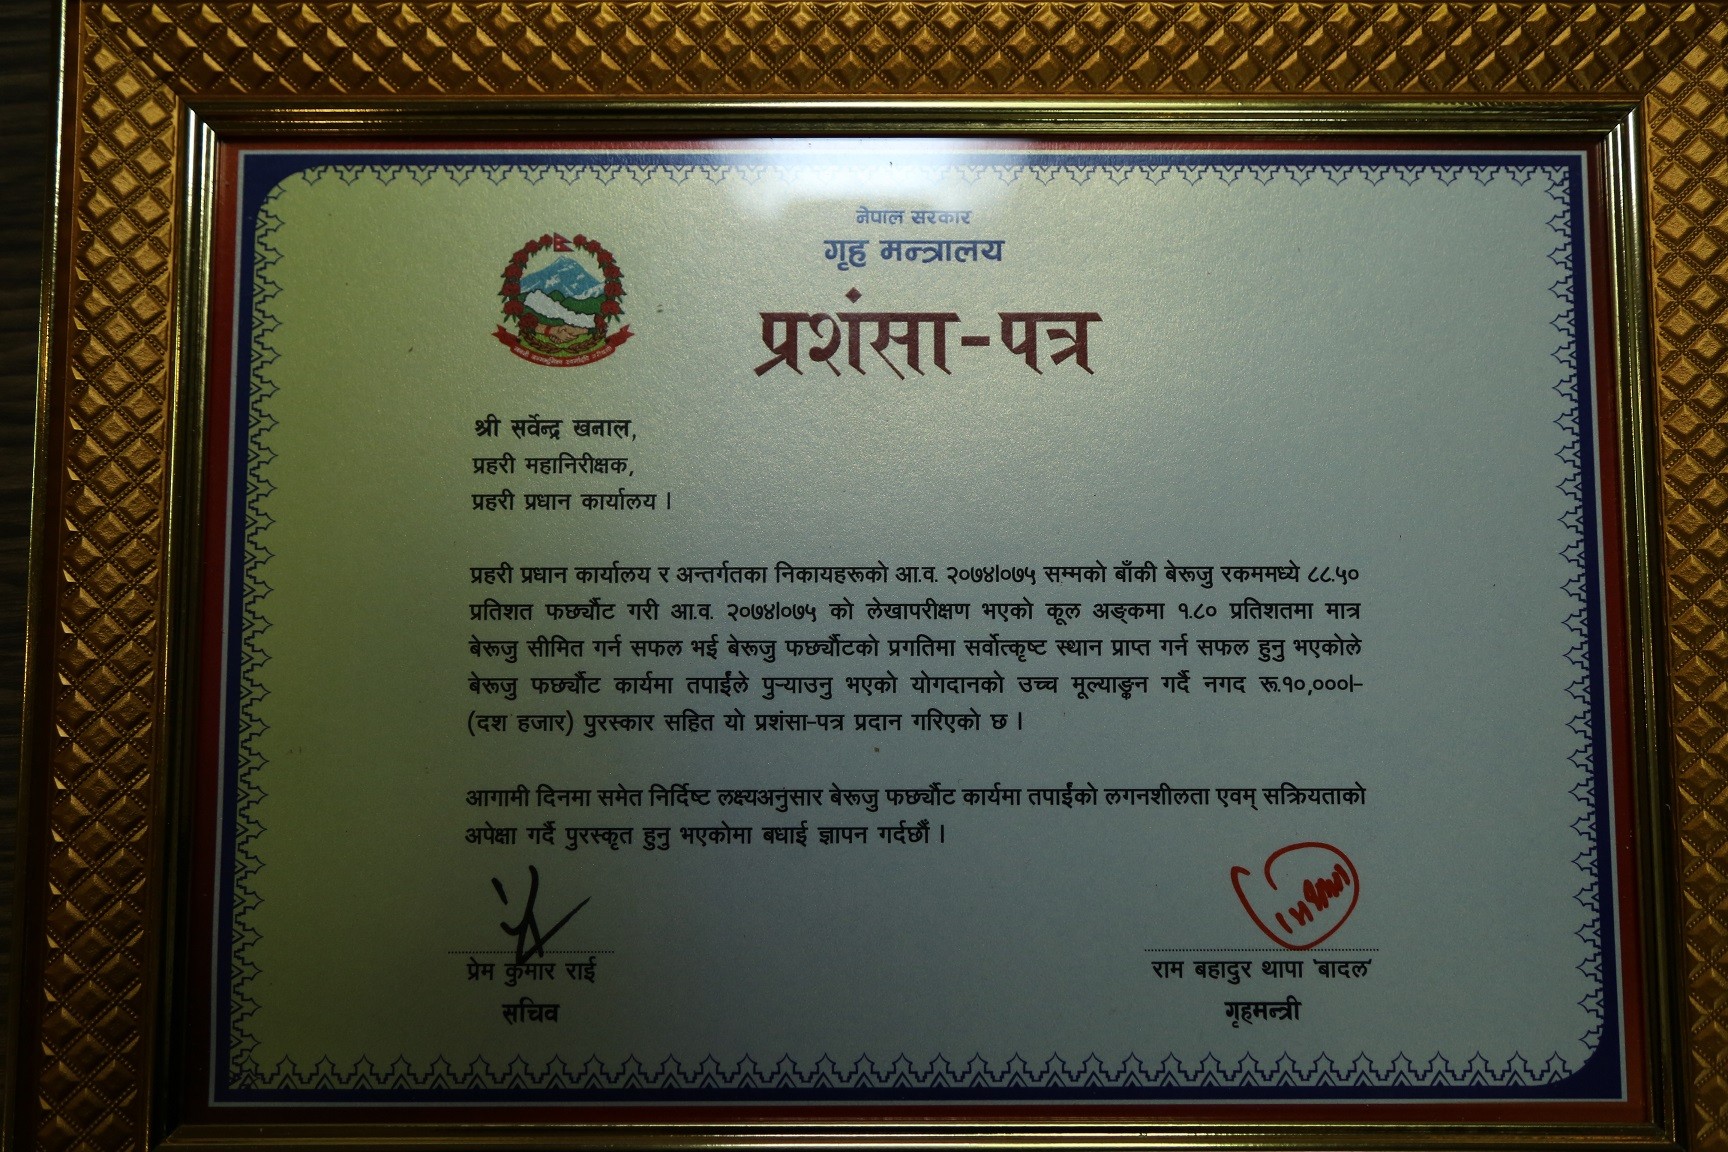 नेपाल सरकार
गृह मन्त्रालय
प्रशंसा-पत्र
श्री सर्वेन्द्र खनाल,
प्रहरी महानिरीक्षक,
प्रहरी प्रधान कार्यालय ।
प्रहरी प्रधान कार्यालय र अन्तर्गतका निकायहरूको आ.व. २०७४।०७५ सम्मको बाँकी बेरूजु रकममध्ये ८८.५०
प्रतिशत फर्छ्यौट गरी आ.व. २०७४।०७५ को लेखापरीक्षण भएको कूल अङ्कमा १.८० प्रतिशतमा मात्र
बेरूजु सीमित गर्न सफल भई बेरूजु फर्छ्यौटको प्रगतिमा सर्वोत्कृष्ट स्थान प्राप्त गर्न सफल हुनु भएकोले
बेरूजु फर्छ्यौट कार्यमा तपाईंले पुर्‍याउनु भएको योगदानको उच्च मूल्याङ्कन गर्दै नगद रू.१०,०००।-
(दश हजार) पुरस्कार सहित यो प्रशंसा-पत्र प्रदान गरिएको छ ।
आगामी दिनमा समेत निर्दिष्ट लक्ष्यअनुसार बेरूजु फर्छ्यौट कार्यमा तपाईंको लगनशीलता एवम् सक्रियताको
अपेक्षा गर्दै पुरस्कृत हुनु भएकोमा बधाई ज्ञापन गर्दछौं ।
प्रेम कुमार राई
राम बहादुर थापा 'बादल'
सचिव
गृहमन्त्री